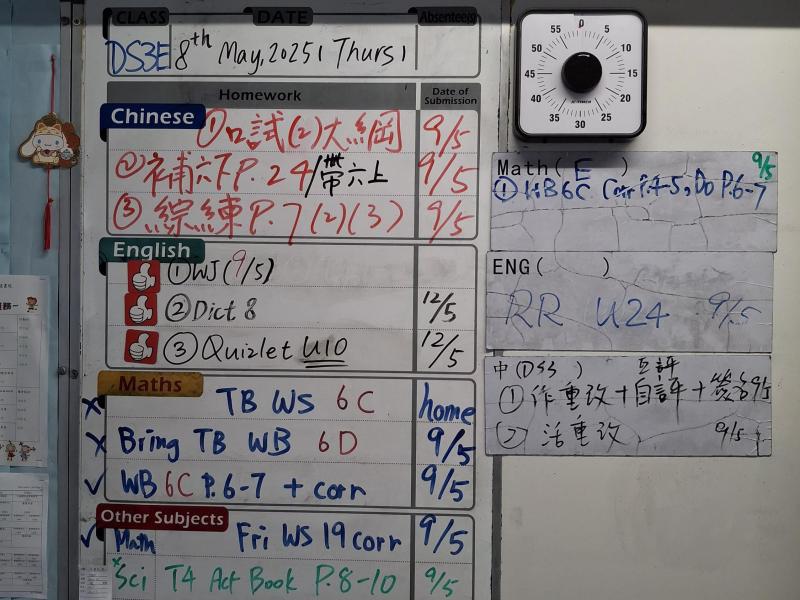 CLASS DATE Absentee(s)
DS3E 8th May, 2025, Thurs,
Homework Date of Submission
Chinese
①口試(2)大綱 9/5
②補六下P.24/帶六上 9/5
③綜練P.7(2)(3) 9/5
English
①WJ(9/5)
②Dict 8 12/5
③Quizlet U10 12/5
Maths
x TB WS 6C home
x Bring TB WB 6D 9/5
✓ WB 6C P.6-7 + corr 9/5
Other Subjects
✓ Math Fri WS 19 corr 9/5
x Sci T4 Act Book P.8-10 9/5
0 5 10 15 20 25 30 35 40 45 50 55
Math( E ) 9/5
① WB 6C Corr P.4-5, Do P.6-7
ENG( )
RR U24 9/5
中(DS3 )
互評
①作重改+自評+簽名 9/5
(2) 活重改 9/5